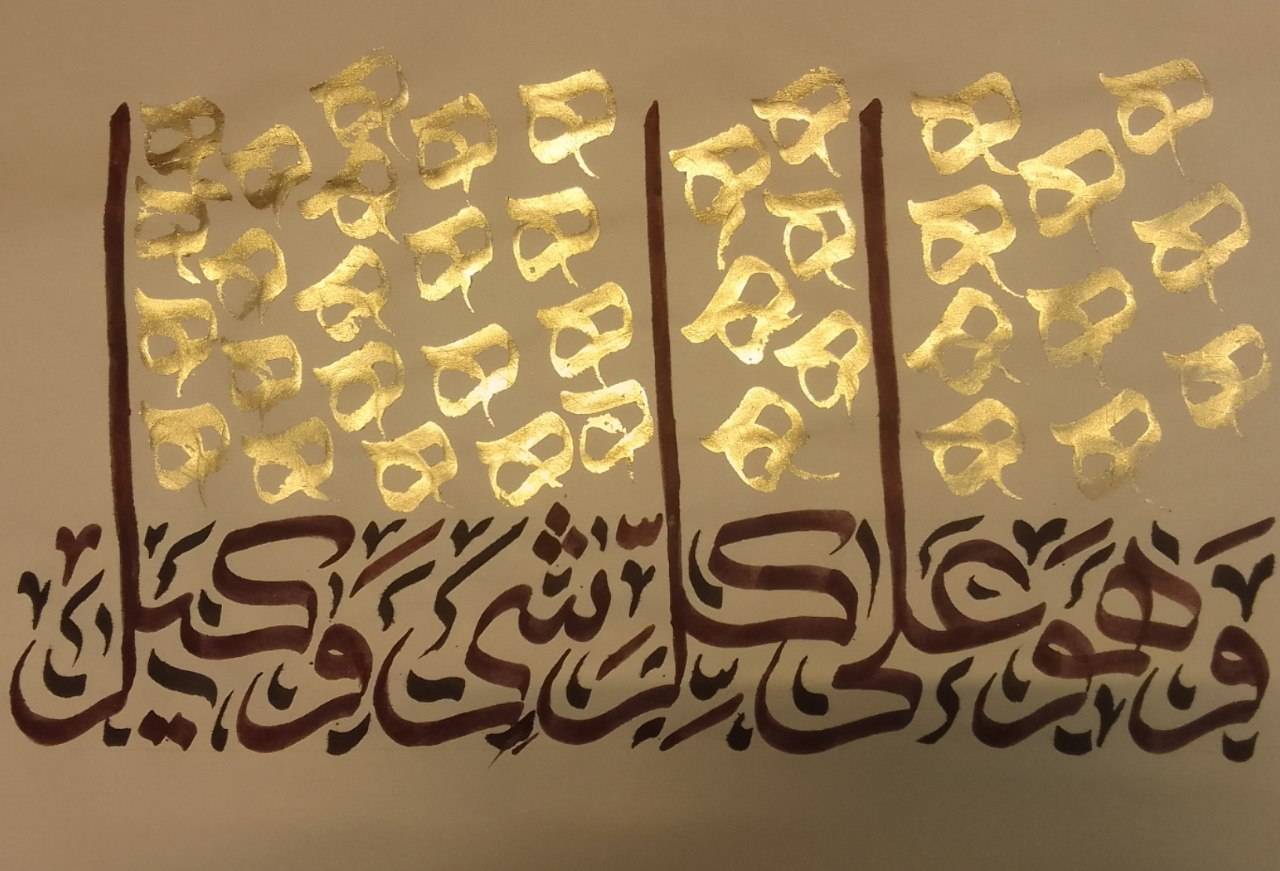 وَهُوَ عَلَى كُلِّ شَىءٍ وَكِيلٌ